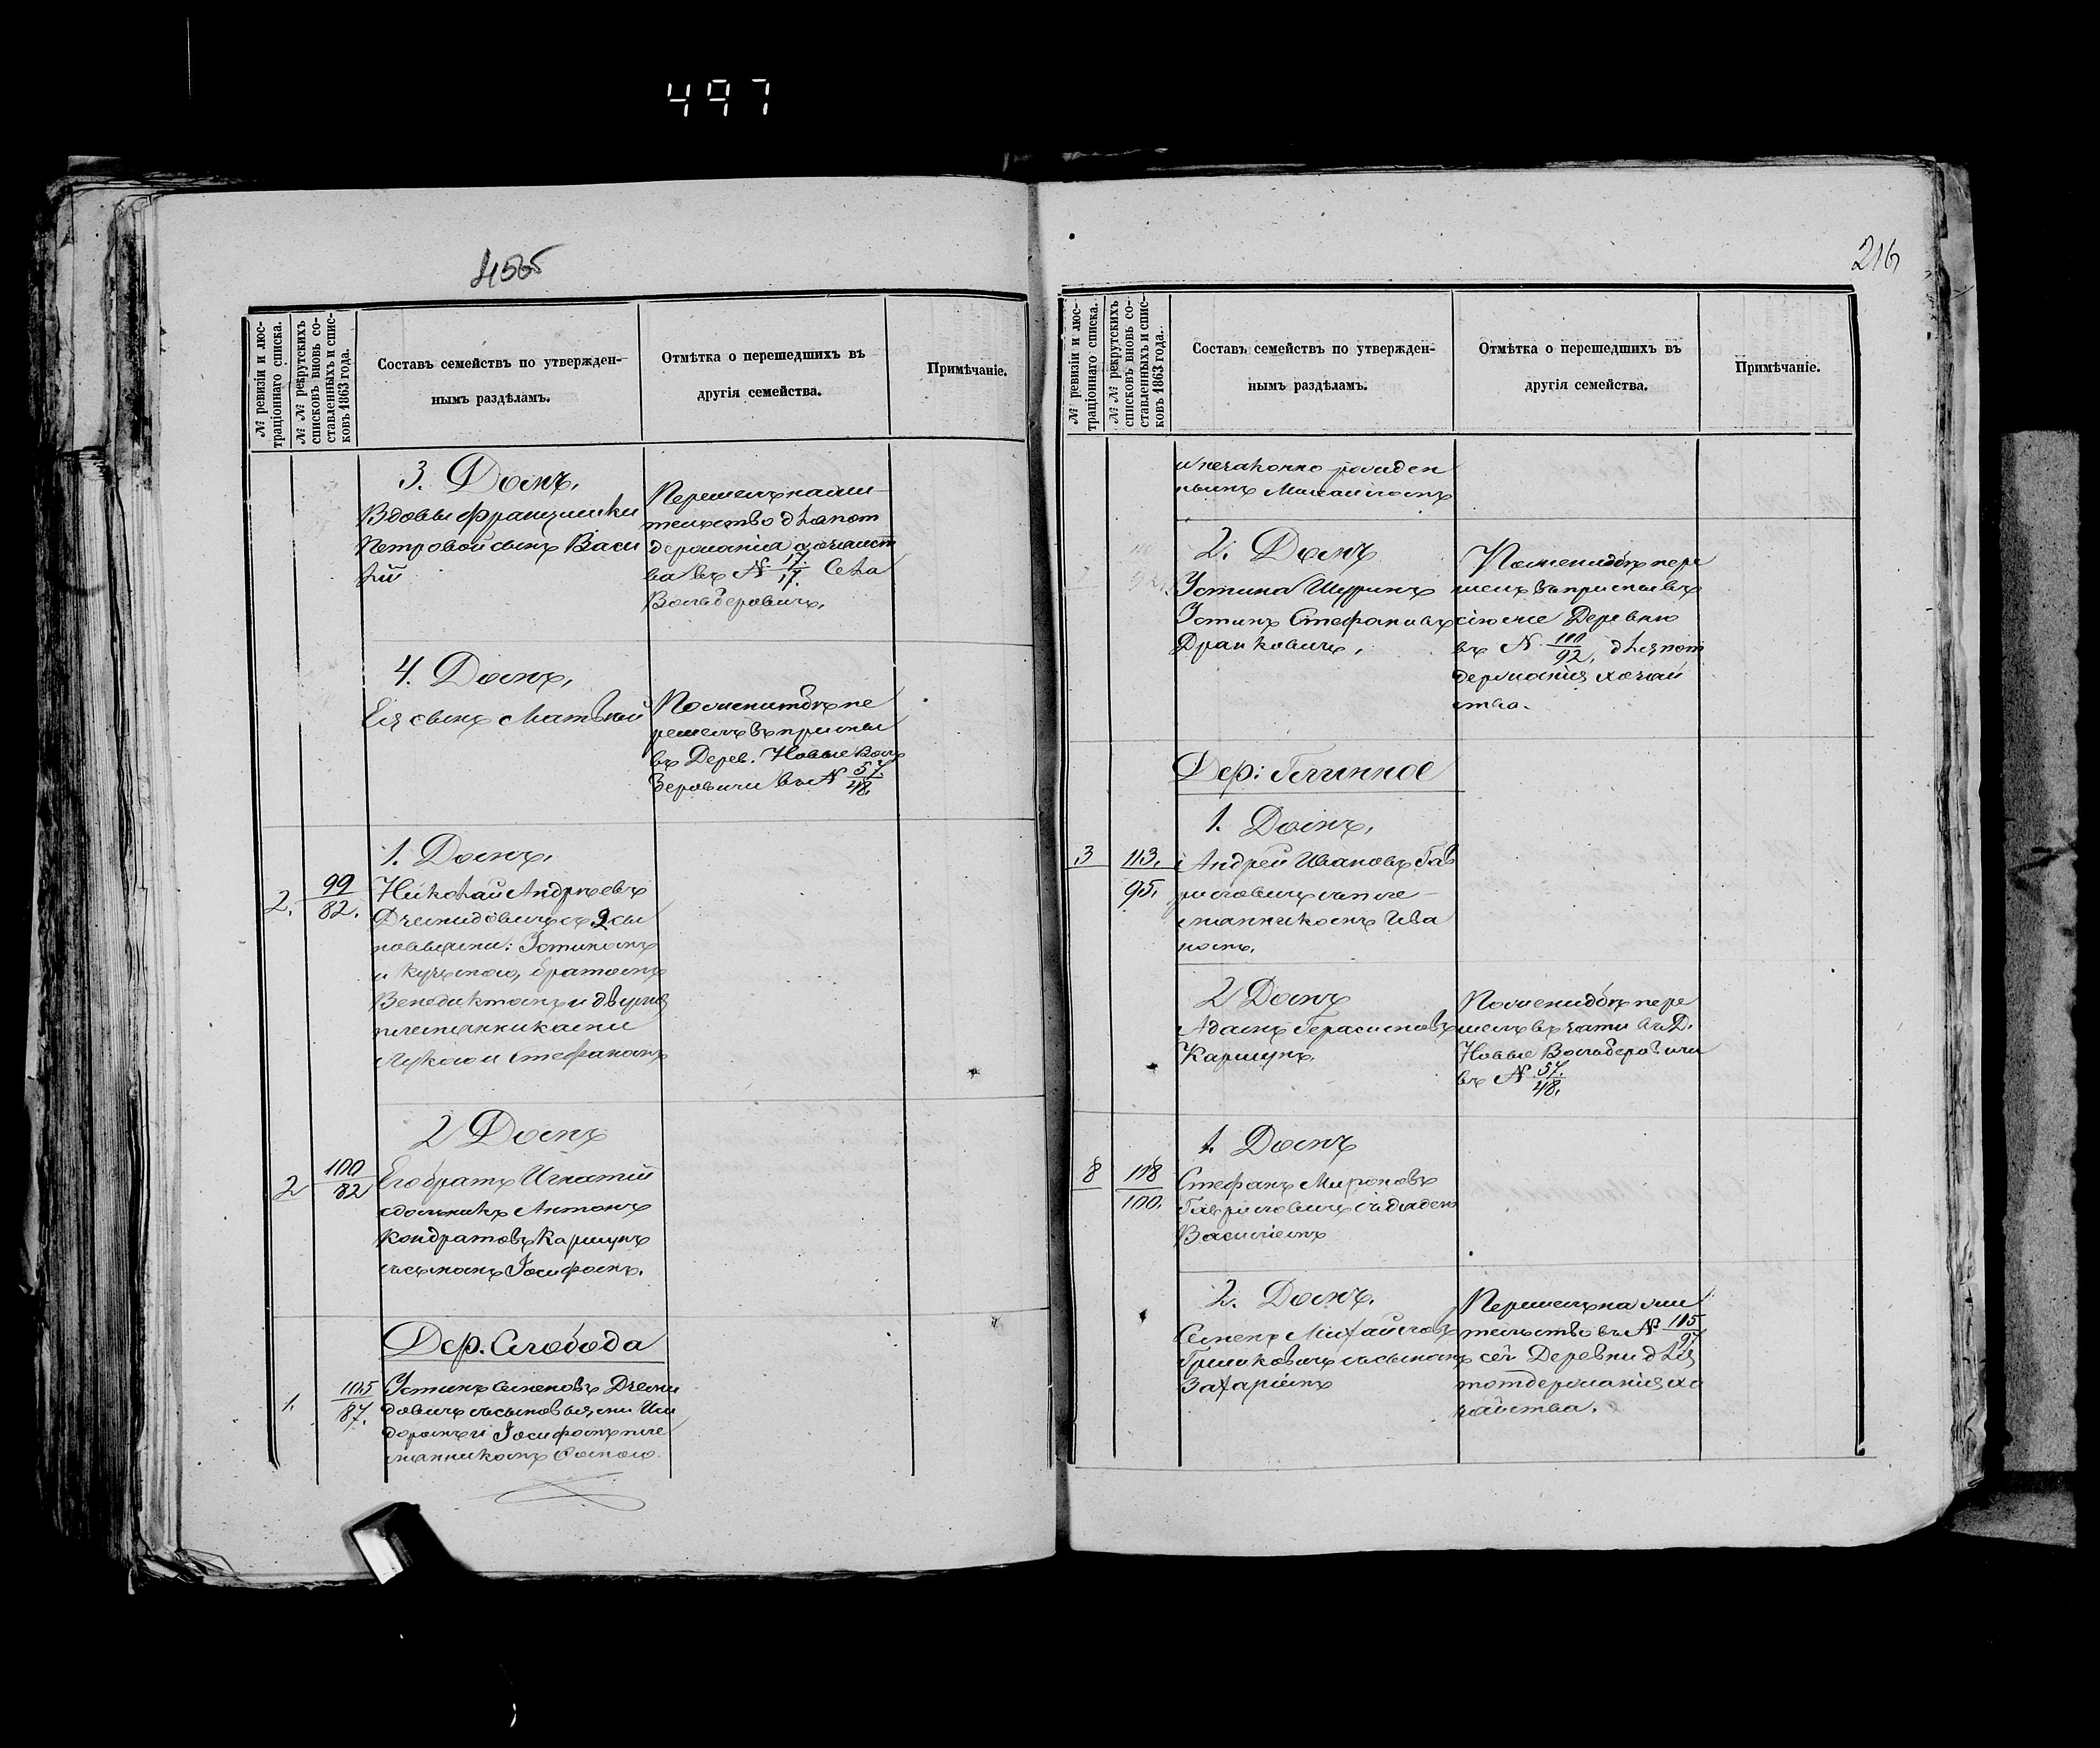 497
455
№ ревизіи и люс-
траціоннаго списка.
№ № рекрутскихъ
списковъ вновь со-
ставленныхъ и спис-
ковъ 1863 года.
Составъ семействъ по утвержден-
нымъ раздѣламъ.
Отмѣтка о перешедшихъ въ
другія семейства.
Примѣчаніе.
3. Домъ,
Вдовы Францишки
Петровой сынъ Васи
лій
Перешелъ на жи-
тельство для пот
держанія хозяист
ва въ № 17/17. Села
Вольберовичъ,
4. Домъ,
Ея сынъ Матвѣй
Поженитбѣ пе
решелъ въ приймы
въ Дерев. Новые Воль
беровичи въ № 57/48.
1. Домъ,
2. 99/82.
Николай Андреевъ
Дземидовичъ съ 2 сы
новьями: Устиномъ
и Кузьмою, братомъ
Венедиктомъ и двумя
племянниками
Лукою и Стефаномъ
2 Домъ
2 100/82
Его братъ Игнатій
дольникъ Антонъ
Кондратовъ Каршунъ
съ сыномъ Іосифомъ.
Дер. Слобода
1. 105/87.
Устинъ Семеновъ Дземи
довичъ съ сыновьями Иси
доромъ и Іосифомъ пле
мянникомъ Фомою
216
№ ревизіи и люс-
траціоннаго списка.
№ № рекрутскихъ
списковъ вновь со-
ставленныхъ и спис-
ковъ 1863 года.
Составъ семействъ по утвержден-
нымъ раздѣламъ.
Отмѣтка о перешедшихъ въ
другія семейства.
Примѣчаніе.
и незаконно рожден
нымъ Михаиломъ
2. Домъ
Устина Шуринъ
Устинъ Стефановъ
Драпковичъ,
Поженидбѣ пере
шелъ въ приймы въ
сію же Деревню
въ № 110/92, для пот
держанія хозяй
ства.
Дер: Глинное
1. Домъ,
3 113./95.
Андрей Ивановъ Гав
риловичъ съ пле-
мянникомъ Ива
номъ.
2 Домъ
Адамъ Герасимовъ
Каршунъ
Поженидбѣ пере
шелъ въ зяти въ Д.
Новые Вольберовичи
въ № 57./48.
1. Домъ
8 118/100.
Стефанъ Мироновъ
Гавриловичъ съ дядею
Василіемъ
2. Домъ.
Семенъ Михайловъ
Гришковичъ съ сыномъ
Захаріемъ
Перешелъ на жи
тельство въ № 115/97
сей Деревни для
потдержанія хо
зайства.